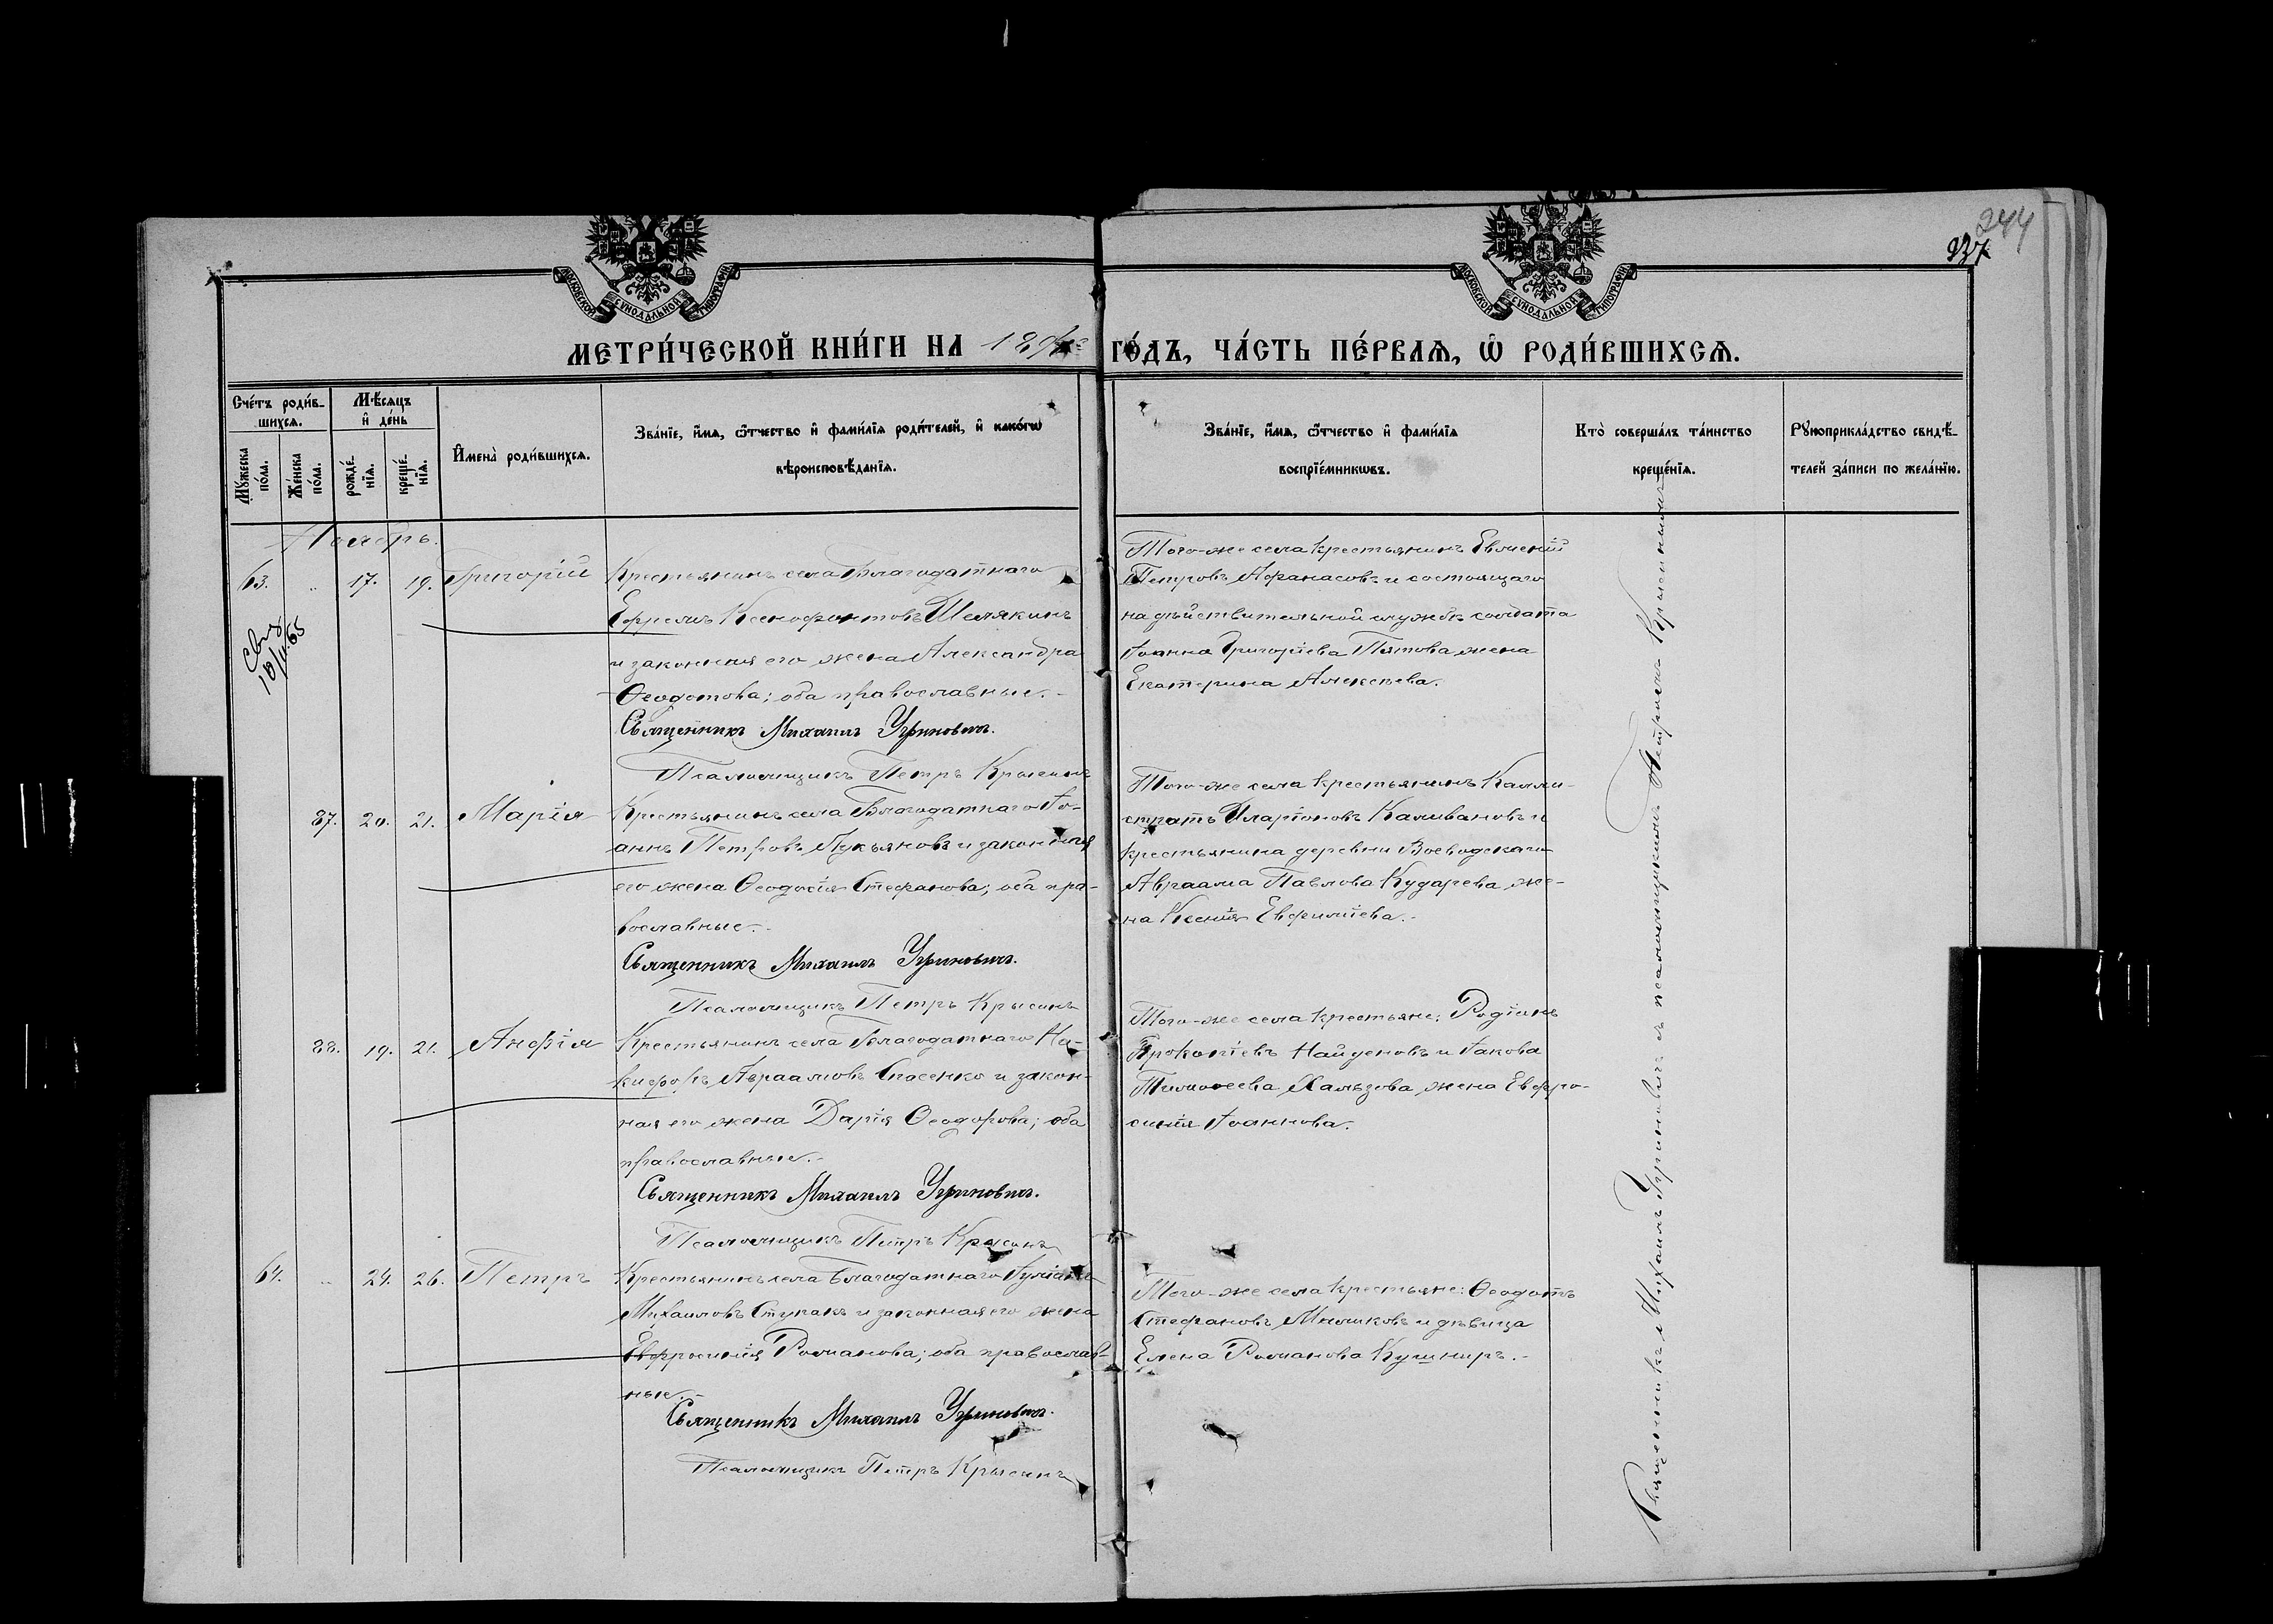 244
237
МОСКОВСКОЙ СѴНОДАЛЬНОЙ ТИПОГРАФІИ
МОСКОВСКОЙ СѴНОДАЛЬНОЙ ТИПОГРАФІИ
МЕТРИ́ЧЕСКОЙ КНИ́ГИ НА 189
ГО́ДЪ, ЧА́СТЬ ПЕ́РВАѦ, Ѡ҆ РОДИ́ВШИХСѦ.
Сче́тъ роди́в-
шихсѧ.
Мꙋ́жеска
по́ла.
Же́нска
по́ла.
Мѣ́сѧцъ
и҆ де́нь
рожде́-
нїѧ.
креще́-
нїѧ.
И҆мена̀ роди́вшихсѧ.
Зва́нїе, и҆́мѧ, ѻ҆́тчество и҆ фами́лїѧ роди́телей, и҆ како́гѡ
вѣроисповѣ́данїѧ.
Зва́нїе, и҆́мѧ, ѻ҆́тчество и҆ фами́лїѧ
воспрїе́мникѡвъ.
Кто̀ соверша́лъ та́инство
креще́нїѧ.
Рꙋкоприкла́дство свидѣ́-
телей за́писи по жела́нїю.
Ноябрь.
63. „ 17. 19. Григорій
Крестьянинъ села Благодатнаго
Ефремъ Ксенофонтовъ Шелякинъ
и законная его жена Александра
Ѳеодотова; оба православные.
Священникъ Михаилъ Угриновичъ.
Псаломщикъ Петръ Крысинъ
Того-же села крестьянинъ Евмений
Петровъ Афанасовъ и состоящаго
на дѣйствительной службѣ солдата
Іоанна Григоріева Пятова жена
Екатерина Алексѣева.
87. 20. 21. Марія
Крестьянинъ села Благодатнаго Іо-
аннъ Петровъ Лукьяновъ и законная
его жена Ѳеодосія Стефанова; оба пра-
вославные.
Священникъ Михаилъ Угриновичъ.
Псаломщикъ Петръ Крысинъ
Того-же села крестьянинъ Калли-
стратъ Иларіоновъ Каливановъ и
крестьянина деревни Воеводскаго
Авраама Павлова Кударева же-
на Ксенія Евфиміева.
88. 19. 21. Анфія
Крестьянинъ села Благодатнаго Ни-
кифоръ Авраамовъ Спасенко и закон-
ная его жена Дарія Ѳеодорова; оба
православные.
Священникъ Михаилъ Угриновичъ.
Псаломщикъ Петръ Крысинъ
Того-же села крестьяне: Родіонъ
Прокопіевъ Найденовъ и Іакова
Тимоѳеева Хальзова жена Евфро-
синія Іоаннова.
64. „ 24. 26. Петръ
Крестьянинъ села Благодатнаго
Михаиловъ Ступакъ и законная его жена
Евфросинія Романова; оба православ-
ные.
Священникъ Михаилъ Угриновичъ.
Псаломщикъ Петръ Крысинъ
Того-же села крестьяне: Ѳеодотъ
Стефановъ Мношковъ и дѣвица
Елена Романова Кушниръ.
Священникъ Михаилъ Угриновичъ съ псаломщикомъ Петромъ Крысинымъ